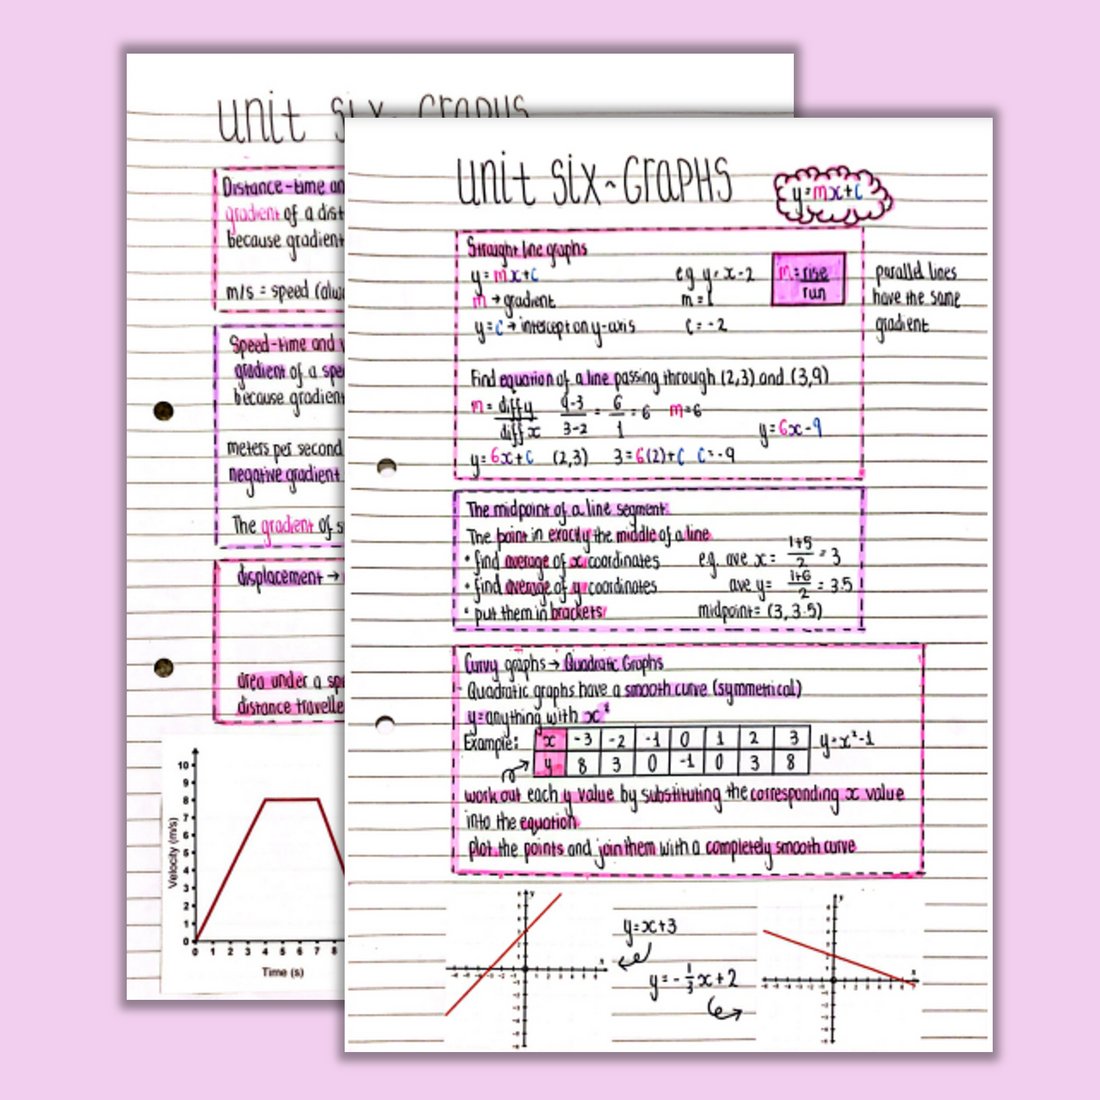 unit six - GRAPHS
Distance-time an
gradient of a dist
because gradient
m/s = speed (alwa
Speed-time and v
gradient of a spe
because gradien
meters per second
negative gradient
The gradient of s
displacement →
area under a sp
distance travelle
Velocity (m/s)
10
9
8
7
6
5
4
3
2
1
0
0 1 2 3 4 5 6 7 8
Time (s)
unit six ~ GRAPHS
y=mx+c
Straight line graphs
y=mx+c
m → gradient
y=c → intercept on y-axis
e.g. y = x-2
m = 1
c = -2
m = rise
run
parallel lines
have the same
gradient
Find equation of a line passing through (2,3) and (3,9)
m = diff y 9-3 = 6 = 6 m=6
diff x 3-2 1
y=6x-9
y=6x+c (2,3) 3=6(2)+c c=-9
The midpoint of a line segment
The point in exactly the middle of a line
• find average of x coordinates
• find average of y coordinates
• put them in brackets
e.g. ave x = 1+5 = 3
2
ave y = 1+6 = 3.5
2
midpoint = (3, 3.5)
Curvy graphs → Quadratic Graphs
- Quadratic graphs have a smooth curve (symmetrical)
y=anything with x²
Example:
x -3 -2 -1 0 1 2 3
y 8 3 0 -1 0 3 8
y=x²-1
work out each y value by substituting the corresponding x value
into the equation
plot the points and join them with a completely smooth curve
y=x+3
y=-1/3x+2